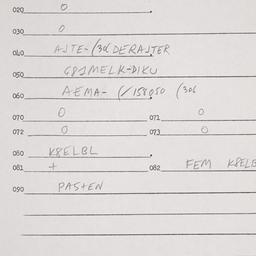 020 0
030 0
040 AJTE-(306 DERAJTER
050 G8JMELK-DIKU
060 AEMA- (/158050 (306
070 0 071 0
072 0 073 0
080 K8ELBL
081 + 082 FEM K8ELB
090 PASTEN